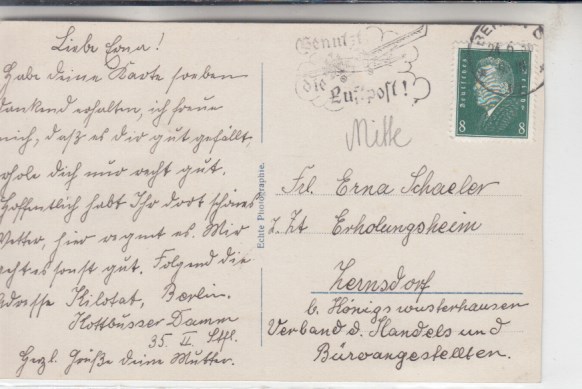 Liebe Erna!
Habe deine Karte soeben
dankend erhalten, ich freue
mich, daß es dir gut gefällt,
erhole dich nur recht gut.
Hoffentlich habt Ihr dort schönes
Wetter, hier regnet es. Mir
geht es sonst gut. Folgend die
Adresse Kilotat, Berlin.
Kottbusser Damm
35. II.
Herzl. Grüße deine Mutter.
Echte Photographie.
Benutzt
die Luftpost!
Deutsches Reich
8 8
Mitte
Frl. Erna Schaeler
z. Zt Erholungsheim
Zernsdorf
b. Königswusterhausen
Verband d. Handels und
Büroangestellten.